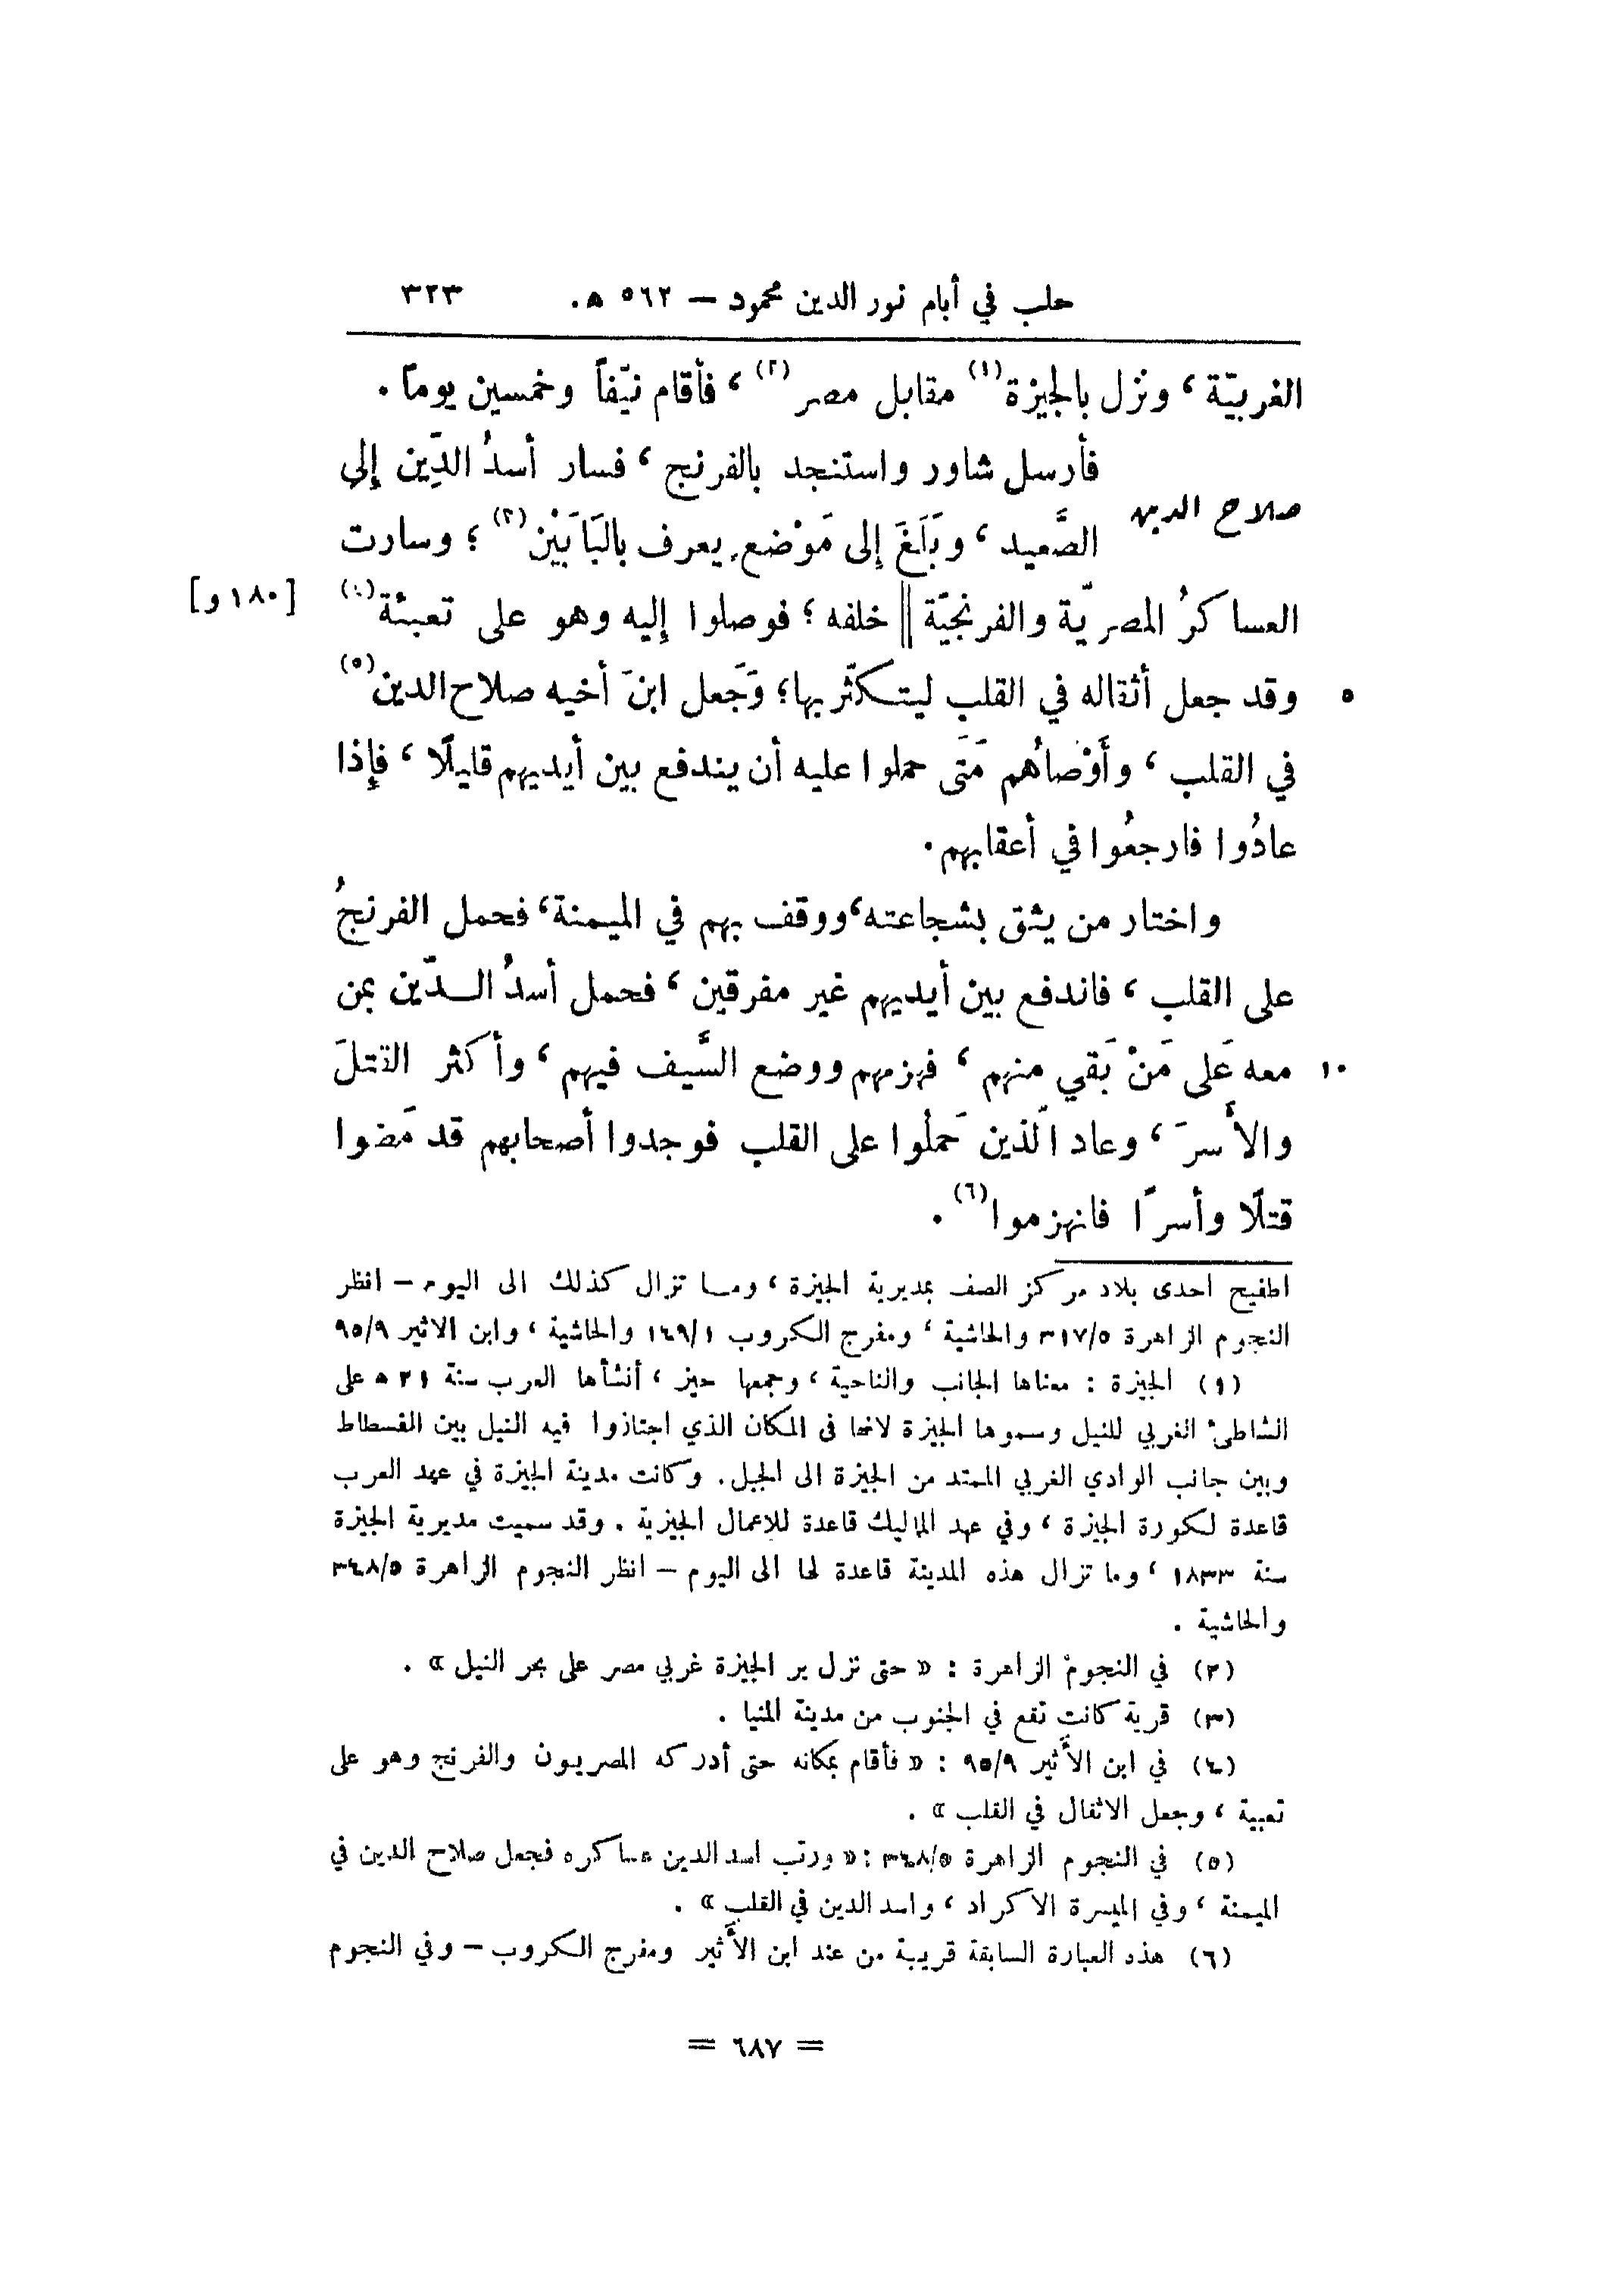 حلب في أيام نور الدين محمود – ٥٦٢ ه. ٣٢٣
الغربيّة ، ونزل بالجيزة(١) مقابل مصر(٢) ، فأقام نيّفاً وخمسين يوماً .
فأرسل شاور واستنجد بالفرنج ، فسار أسدُ الدِّين إلى
صلاح الدين
الصَّعيد ، وبَلَغَ إلى مَوْضع يعرف بالبَابَيْن(٣) ؛ وسارت
العساكرُ المصريّة والفرنجيّة || خلفه ؛ فوصلوا إليه وهو على تعبئة(٤) [١٨٠ و]
٥ وقد جعل أثقاله في القلب ليتكثّر بها ؛ وَجَعل ابنَ أخيه صلاح الدين(٥)
في القلب ، وأَوْصاُهم مَتَى حملوا عليه أن يندفع بين أيديهم قليلًا ، فإِذا
عادُوا فارجعُوا في أعقابهم .
واختار من يثق بشجاعته ، ووقف بهم في الميمنة ، فحمل الفرنجُ
على القلب ، فاندفع بين أيديهم غير مفرقين ، فحمل أسدُ الدّين بمن
١٠ معه عَلى مَنْ بَقي منهم ، فهزمهم ووضع السَّيف فيهم ، وأكثر القتلَ
والأَسرَ ، وعاد الَذين حَملُوا على القلب فوجدوا أصحابهم قد مَضوا
قتلًا وأسرًا فانهزموا(٦) .
اطفيح احدى بلاد مركز الصف بمديرية الجيزة ، وما تزال كذلك الى اليوم – انظر
النجوم الزاهرة ٣١٧/٥ والحاشية ، ومفرج الكروب ١٤٩/١ والحاشية ، وابن الاثير ٩٥/٩
(١) الجيزة : معناها الجانب والناحية ، وجمعها حيز ، أنشأها العرب سنة ٢١ ه على
الشاطئ الغربي للنيل وسموها الجيزة لانها في المكان الذي اجتازوا فيه النيل بين الفسطاط
وبين جانب الوادي الغربي الممتد من الجيزة الى الجبل. وكانت مدينة الجيزة في عهد العرب
قاعدة لكورة الجيزة ، وفي عهد المماليك قاعدة للاعمال الجيزية . وقد سميت مديرية الجيزة
سنة ١٨٣٣ ، وما تزال هذه المدينة قاعدة لها الى اليوم – انظر النجوم الزاهرة ٣٤٨/٥
والحاشية .
(٢) في النجوم الزاهرة : « حتى نزل بر الجيزة غربي مصر على بحر النيل » .
(٣) قرية كانت تقع في الجنوب من مدينة المنيا .
(٤) في ابن الأثير ٩٥/٩ : « فأقام بمكانه حتى أدركه المصريون والفرنج وهو على
تعبية ، وجعل الاثقال في القلب » .
(٥) في النجوم الزاهرة ٣٤٨/٥ : « ورتب اسد الدين عساكره فجعل صلاح الدين في
الميمنة ، وفي الميسرة الاكراد ، واسد الدين في القلب » .
(٦) هذه العبارة السابقة قريبة من عند ابن الأثير ومفرج الكروب – وفي النجوم
= ٦٨٧ =